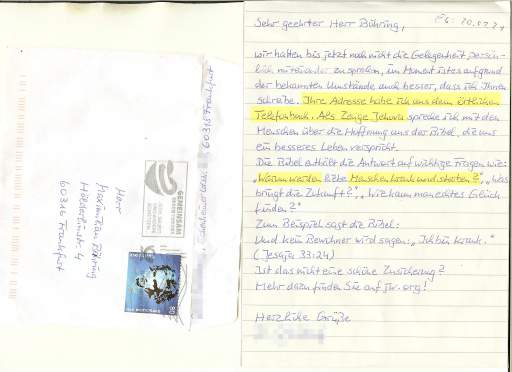 Sehr geehrter Herr Bühring,
wir hatten bis jetzt noch nicht die Gelegenheit persön-
lich miteinander zu sprechen, im Moment ist es aufgrund
der bekannten Umstände auch besser, dass ich Ihnen
schreibe. Ihre Adresse habe ich aus dem örtlichen
Telefonbuch. Als Zeuge Jehova spreche ich mit den
Menschen über die Hoffnung aus der Bibel, die uns
ein besseres Leben verspricht.
Die Bibel enthält die Antwort auf wichtige Fragen wie:
„Warum werden liebe Menschen krank und sterben?", „Was
bringt die Zukunft?", „Wie kann man echtes Glück
finden?"
Zum Beispiel sagt die Bibel:
Und kein Bewohner wird sagen: „Ich bin krank."
(Jesaja 33:24)
Ist das nicht eine schöne Zusicherung?
Mehr dazu finden Sie auf jw.org!
Herzliche Grüße
Herr
Maximilian Bühring
Hölderlinstr. 4
60316 Frankfurt
GEMEINSAM